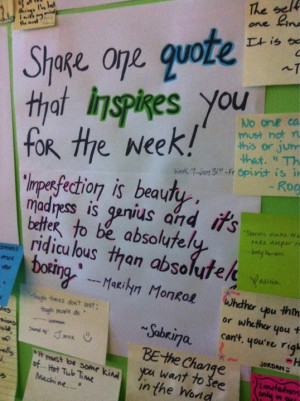 Share one quote
that inspires you
for the week!
"Imperfection is beauty,
madness is genius and it's
better to be absolutely
ridiculous than absolutely
boring"
--- Marilyn Monroe
~Sabrina
BE the Change
you want to see
in the World
"It must be some kind
of - Hot Tub Time
Machine..."
Tough times don't last;
tough people do
No one ca
must not
this or jum
that. "Th
Spirit is i
- Ro
The sel
one fin
It is so
Whether you thin
or whether you
can't, you're righ
JORDAN